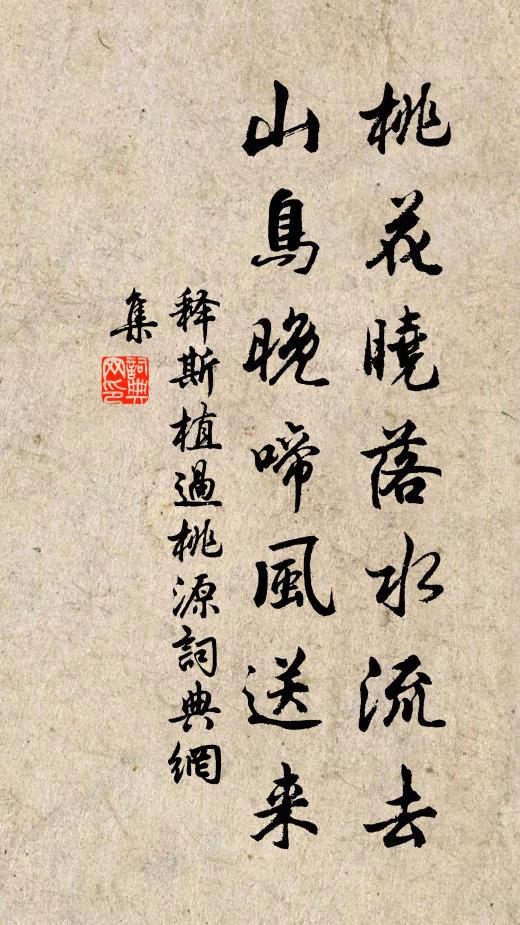 桃花曉落水流去
山鳥晚啼風送来
释斯植過桃源詞典網
集
詞典网印